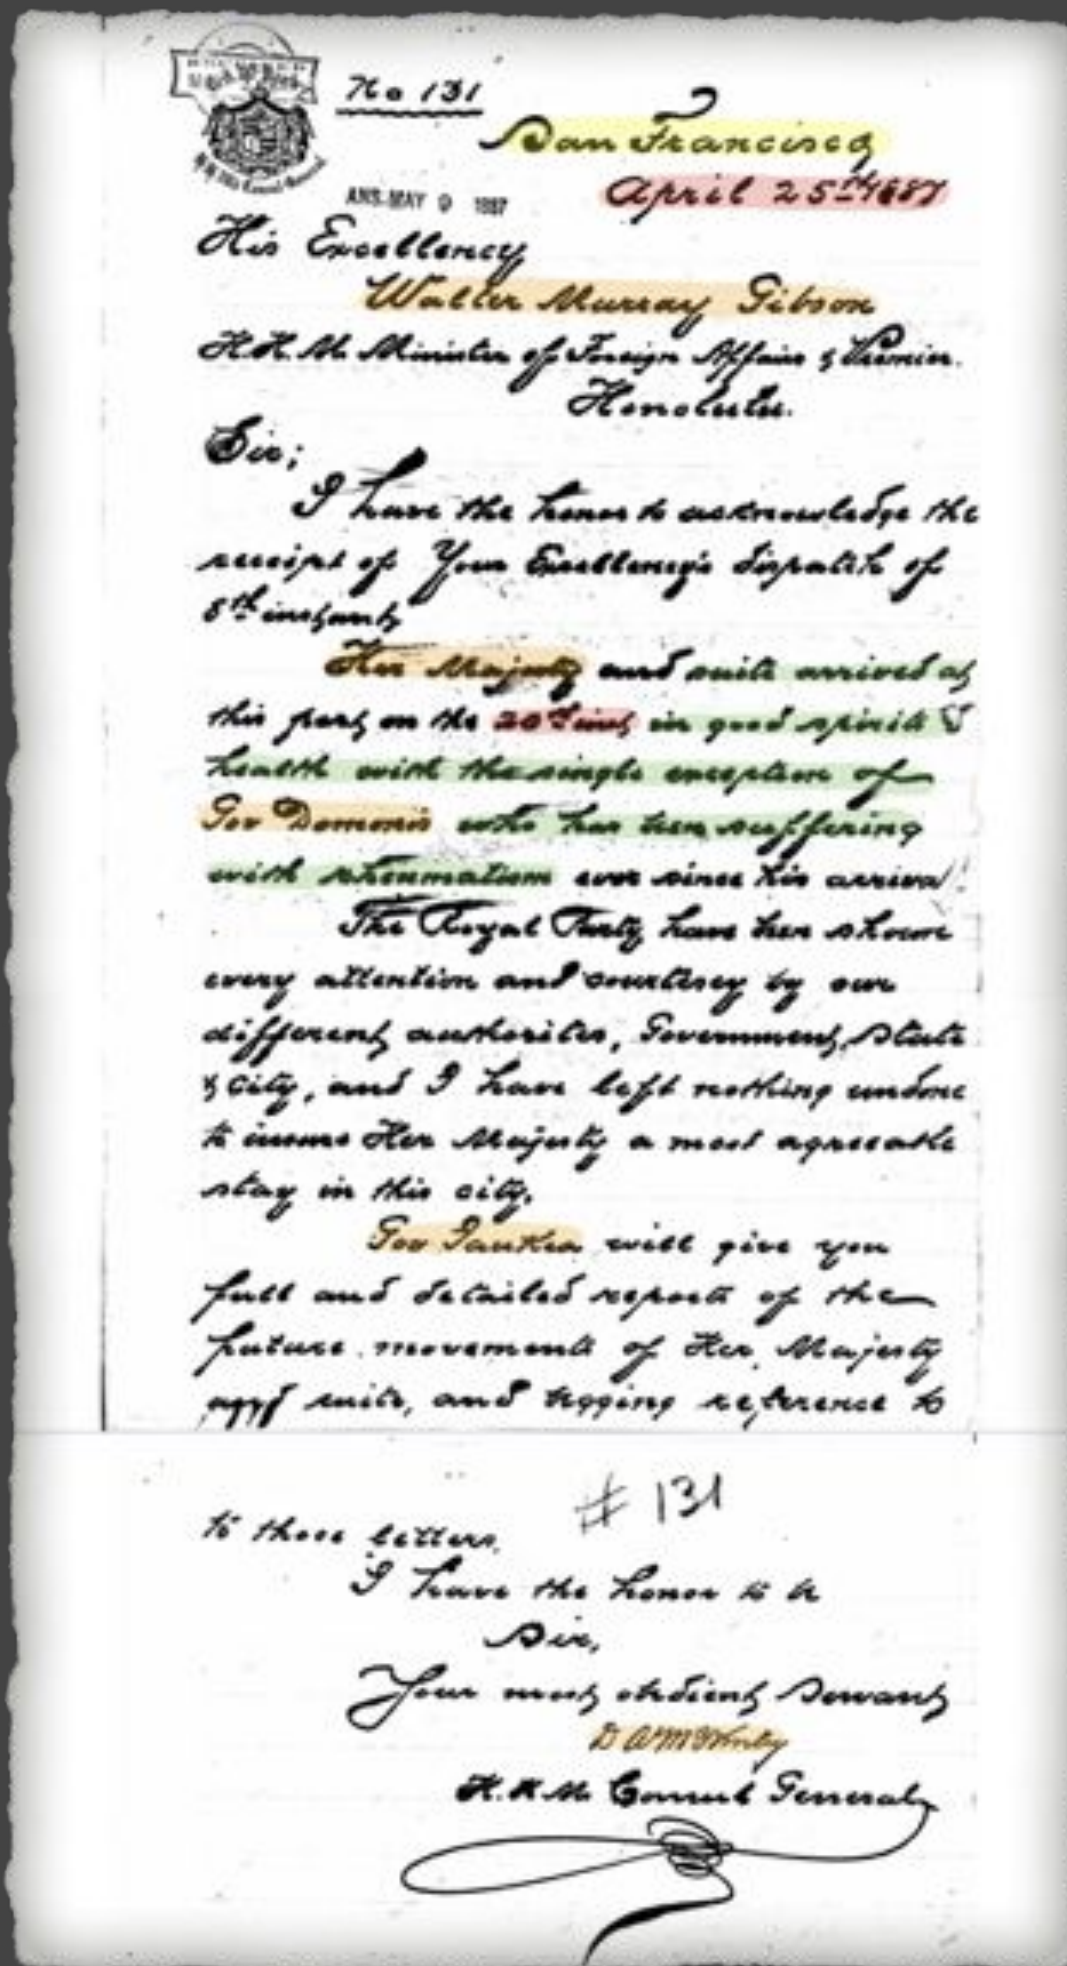 No 131
San Francisco
April 25th 1887
ANS. MAY 9 1887
His Excellency
Walter Murray Gibson
H.H.M. Minister of Foreign Affairs & Premier.
Honolulu.
Sir;
I have the honor to acknowledge the
receipt of Your Excellency's dispatch of
8th instant,
Her Majesty and suite arrived at
this port on the 20th inst, in good spirits &
health with the single exception of
Gov Domonis who has been suffering
with rheumatism ever since his arrival.
The Royal Party have been shown
every attention and courtesy by our
different authorites, Government, State
& City, and I have left nothing undone
to insure Her Majesty a most agreeable
stay in this city.
Gov Iaukea will give you
full and detailed reports of the
future movements of Her Majesty
and suite, and begging reference to
# 131
to those letters.
I have the honor to be
Sir,
Your most obedient Servant
D A McKinley
H.H.M. Consul General